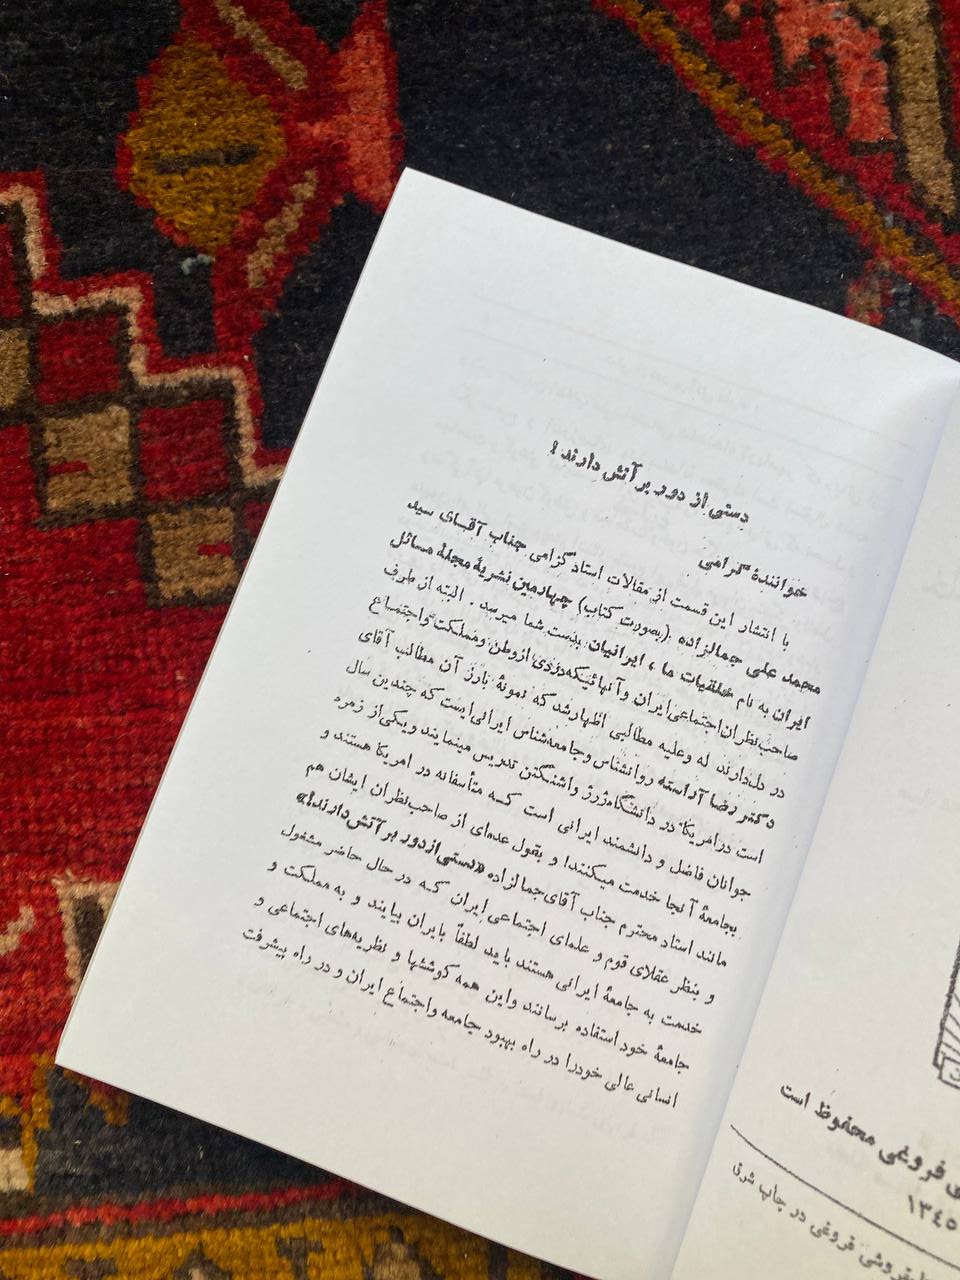 دستی از دور بر آتش دارند!
خوانندهٔ گرامی
با انتشار این قسمت از مقالات استاد گرامی جناب آقای سید
محمد علی جمالزاده (بصورت کتاب) چهارمین نشریهٔ مجلهٔ مسائل
ایران به نام خلقیات ما ، ایرانیان بدست شما میرسد . البته از طرف
صاحب‌نظران اجتماعی ایران و آنهائیکه دردی از وطن و مملکت و اجتماع
در دل دارند له و علیه مطالبی اظهار شد که نمونهٔ بارز آن مطالب آقای
دکتر رضا آراسته روانشناس و جامعه‌شناس ایرانی ایست که چندین سال
است در امریکا در دانشگاه ژرژ واشنگتن تدریس مینمایند و یکی از زمره
جوانان فاضل و دانشمند ایرانی است که متأسفانه در امریکا هستند و
بجامعهٔ آنجا خدمت میکنند! و بقول عده‌ای از صاحب‌نظران ایشان هم
مانند استاد محترم جناب آقای جمالزاده «دستی از دور بر آتش دارند!»
و بنظر عقلای قوم و علمای اجتماعی ایران که در حال حاضر مشغول
خدمت به جامعهٔ ایرانی هستند باید لطفاً بایران بیایند و به مملکت و
جامعهٔ خود استفاده برسانند و این همه کوششها و نظریه‌های اجتماعی و
انسانی عالی خود را در راه بهبود جامعه و اجتماع ایران و در راه پیشرفت
فروغی محفوظ است
۱۳٤٥
فروشی فروغی در چاپ شرق